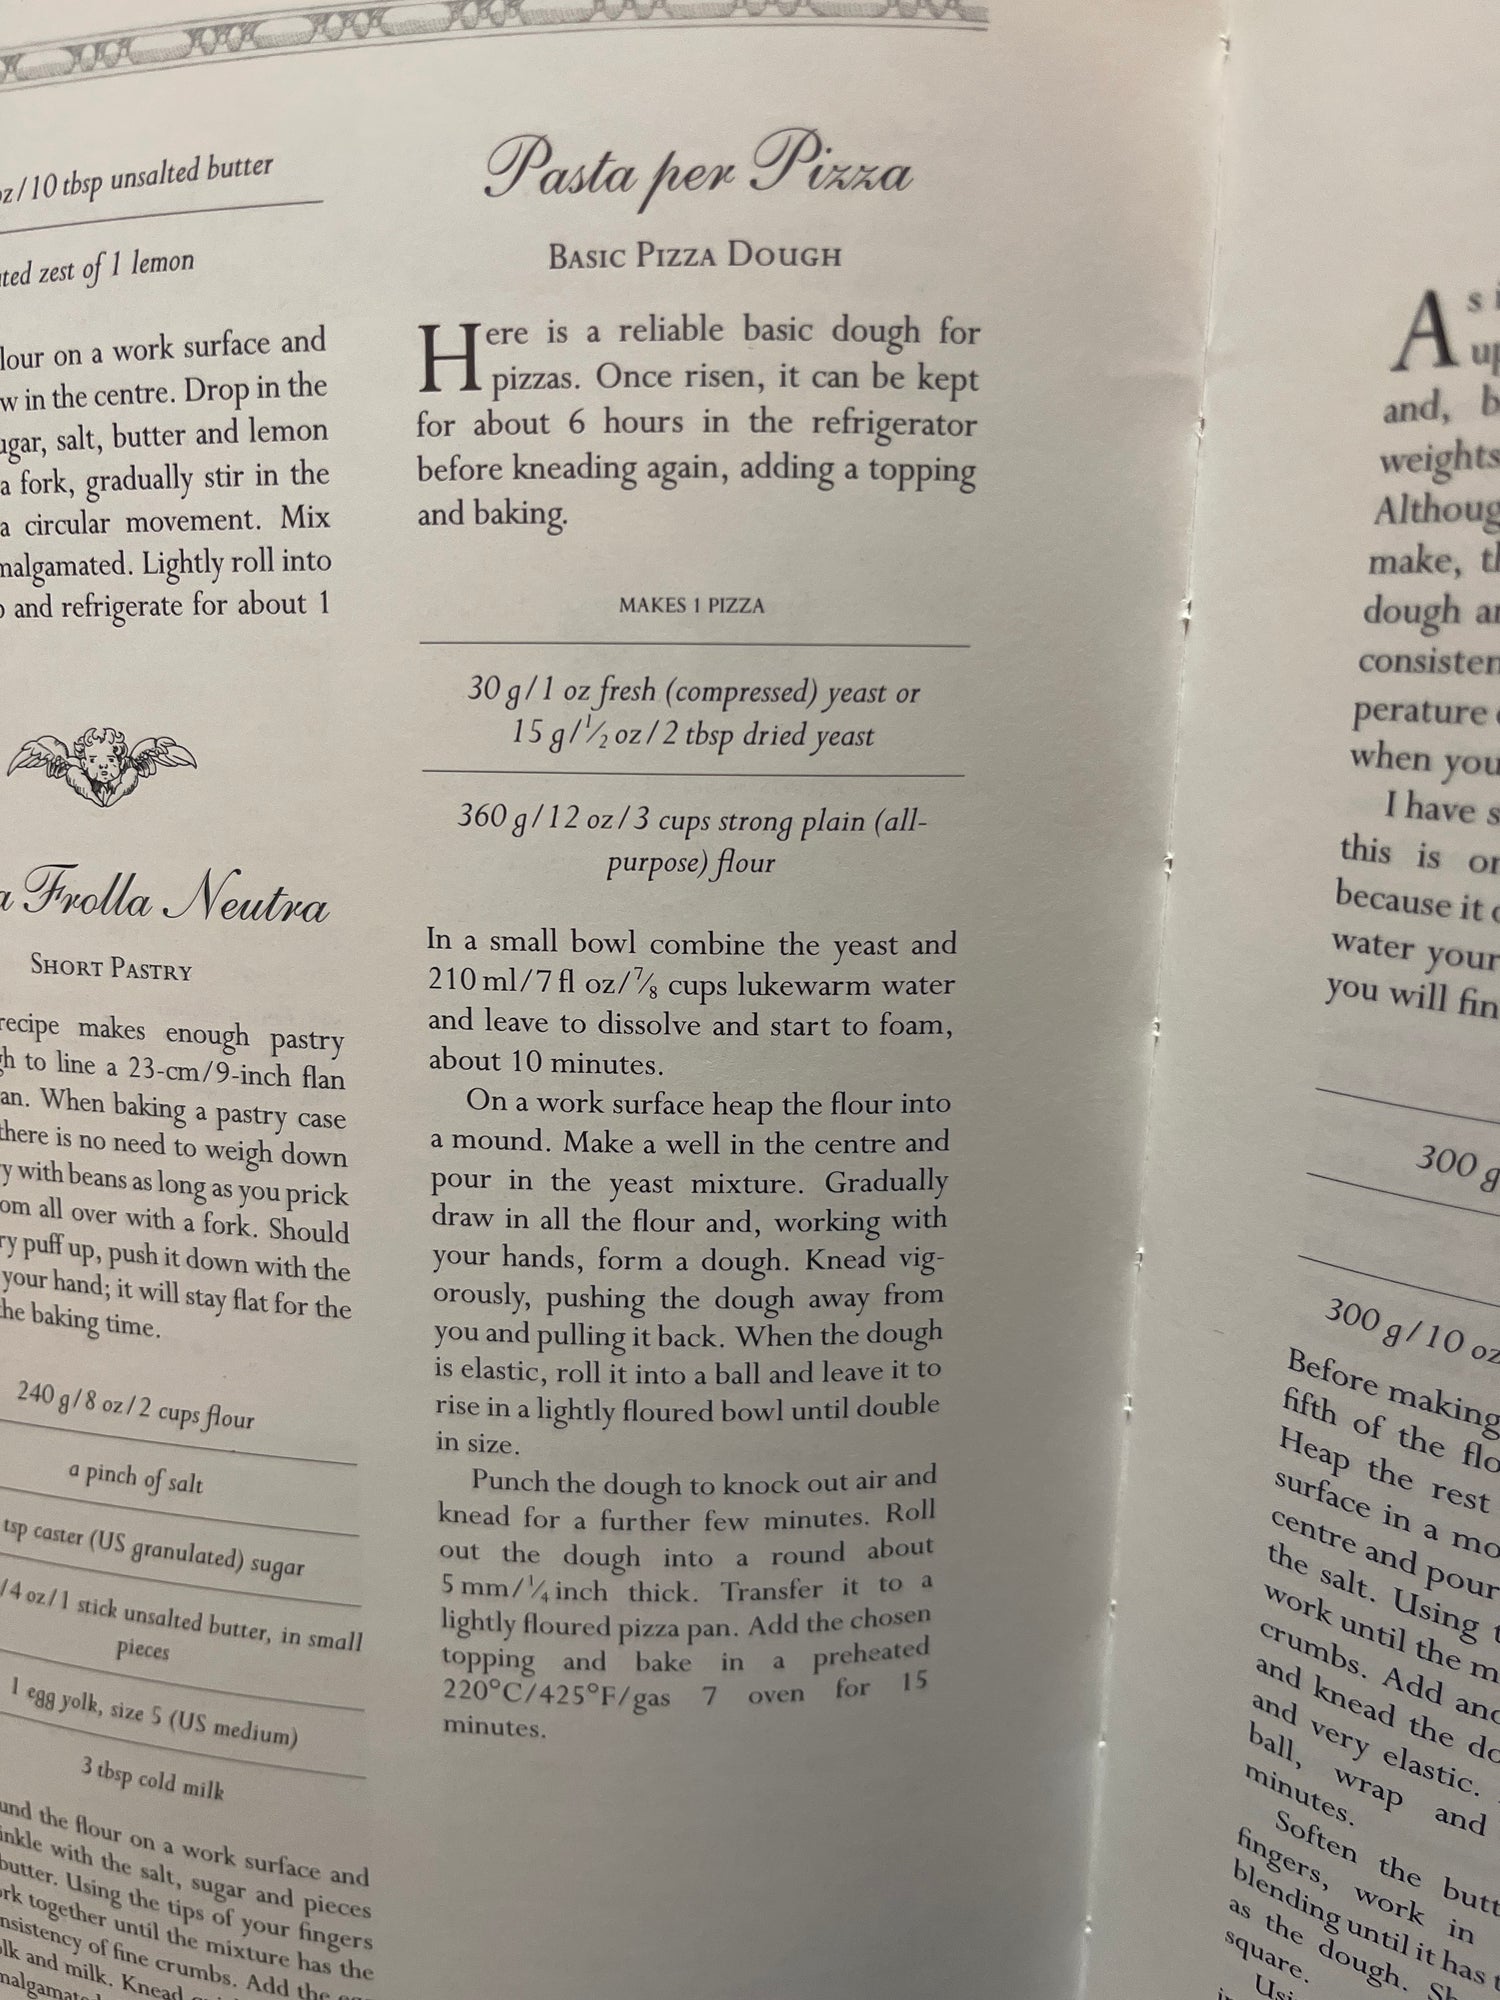 oz/10 tbsp unsalted butter
zest of 1 lemon
on a work surface and
in the centre. Drop in the
salt, butter and lemon
a fork, gradually stir in the
a circular movement. Mix
Lightly roll into
and refrigerate for about 1
Frolla Neutra
SHORT PASTRY
recipe makes enough pastry
to line a 23-cm/9-inch flan
When baking a pastry case
there is no need to weigh down
with beans as long as you prick
all over with a fork. Should
puff up, push it down with the
your hand; it will stay flat for the
baking time.
240 g/8 oz/2 cups flour
a pinch of salt
tsp caster (US granulated) sugar
/4 oz/1 stick unsalted butter, in small
pieces
1 egg yolk, size 5 (US medium)
3 tbsp cold milk
the flour on a work surface and
with the salt, sugar and pieces
butter. Using the tips of your fingers
together until the mixture has the
of fine crumbs. Add the
and milk. Knead
Pasta per Pizza
BASIC PIZZA DOUGH
Here is a reliable basic dough for
pizzas. Once risen, it can be kept
for about 6 hours in the refrigerator
before kneading again, adding a topping
and baking.
MAKES 1 PIZZA
30 g/1 oz fresh (compressed) yeast or
15 g/½ oz/2 tbsp dried yeast
360 g/12 oz/3 cups strong plain (all-
purpose) flour
In a small bowl combine the yeast and
210 ml/7 fl oz/⅞ cups lukewarm water
and leave to dissolve and start to foam,
about 10 minutes.
On a work surface heap the flour into
a mound. Make a well in the centre and
pour in the yeast mixture. Gradually
draw in all the flour and, working with
your hands, form a dough. Knead vig-
orously, pushing the dough away from
you and pulling it back. When the dough
is elastic, roll it into a ball and leave it to
rise in a lightly floured bowl until double
in size.
Punch the dough to knock out air and
knead for a further few minutes. Roll
out the dough into a round about
5 mm/¼ inch thick. Transfer it to a
lightly floured pizza pan. Add the chosen
topping and bake in a preheated
220°C/425°F/gas 7 oven for 15
minutes.
As
and,
weights
make,
dough
when you
I have
this is
because it
water your
you will
300 g
300 g/10 oz
Before making
fifth of the
Heap the rest
surface in a
centre and pour
the salt. Using
work until the
crumbs. Add
and knead the
and very elastic.
ball, wrap and
minutes.
Soften the
fingers, work in
blending until it has
as the dough.
square.